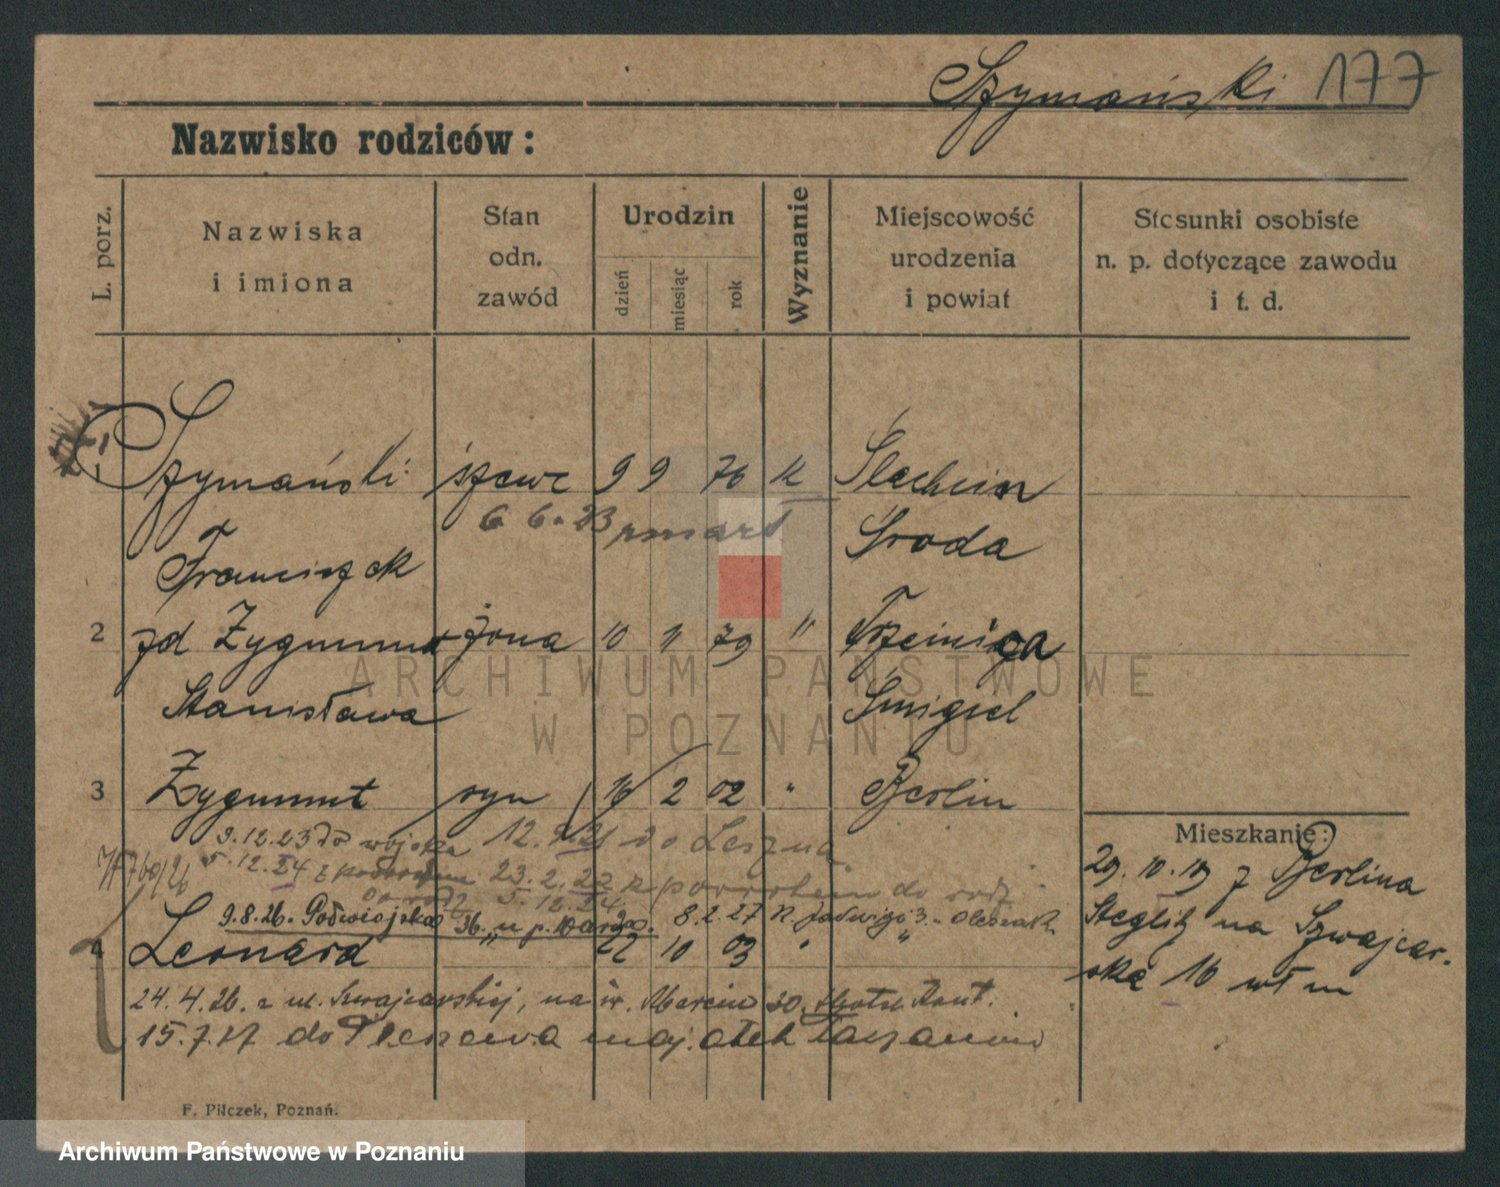 Szymański 177
Nazwisko rodziców:
L. porz.
Nazwiska
i imiona
Stan
odn.
zawód
Urodzin
dzień
miesiąc
rok
Wyznanie
Miejscowość
urodzenia
i powiat
Stosunki osobiste
n. p. dotyczące zawodu
i t. d.
1 Szymański szewc 9 9 76 k
6 6. 23 zmarł Środa
Franciszek
2 zd Zygmunt żona 10 11 79 " Trzcinica
Stanisława Śmigiel
3 Zygmunt syn 16 2 02 " Berlin
9.12.23 do wojska 12. 21 do Leszna.
5.12.24 z 23.2.22 z powrotem do rodz
5.12.24
9.8.26. 36. u p. 8.2.27 Jadwigi 3. Oleszak
4 Leonard 22 10 03 " "
24.4.26. z ul. Szwajcarskiej, na św. Marcin 30.
15.7.27 do Pleszewa maj.
Mieszkanie:
29.10.19 z Berlina
Steglitz na Szwajcar-
ską 16
F. Pilczek, Poznań.
ARCHIWUM PAŃSTWOWE
W POZNANIU
Archiwum Państwowe w Poznaniu